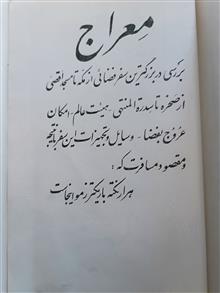 معراج
بررسی در بزرگترین سفر فضائی از مکه تا مسجد اقصی
از صخره تا سدرة المنتهی - هیئت عالم - امکان
عروج بفضا - وسایل و تجهیزات این سفر با عظمت
و مقصود مسافرت که :
هزار نکته باریکتر ز مو اینجاست